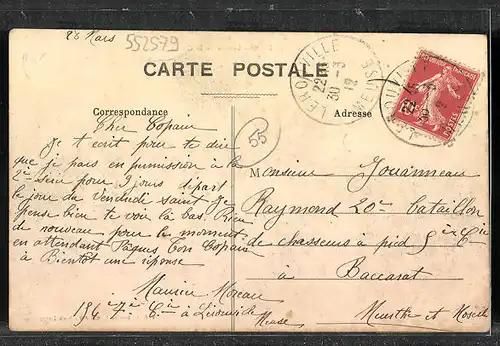 23 Mars
552579
LEROUVILLE
22 30
30 -3
12
MEUSE
CARTE POSTALE
REPUBLIQUE FRANÇAISE
10
POSTES
Correspondance
Adresse
55
Cher Copain
Je t ecrit pour te dire
que je pars en permission à la
2e sem pour 9 jours départ
le jour du Vendude saint Je
pense bien te voir là bas Rien
de nouveau pour le moment
en attendant Pâques Ton Copain
à Bientôt une réponse
Maurice Moreau
154 7e Cie à Lérouville
Meuse
Monsieur Jouanneau
Raymond 20e bataillon
de chasseurs à pied 5e Cie
à Baccarat
Meurthe et Moselle